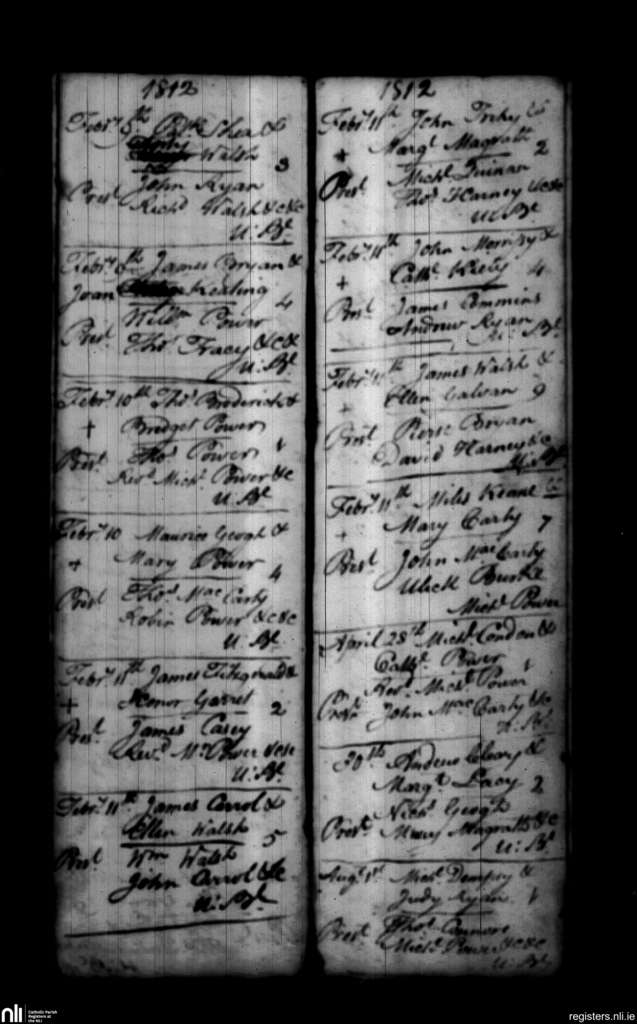 1812
Febry 5th Patk Shea &
Walsh 3
John Ryan
Prest Richd Walsh &c &c
U: Bt
Febry 6th James Bryan &
Joan Keating 4
Willm Power
Prest Thos Tracy &c &
U: Bt
Febry 10th Thos Broderick &
+ Bridget Power
Prest Thos Power 1
Revd Michl Power &c
U: Bt
Febry 10 Maurice Geogh &
+ Mary Power 4
Prest Thos MacCarty
Robin Power &c &c
U: Bt
Febry 11th James Fitzgerald &
+ Honor Garret 2
Prest James Casey
Revd Ml Power &c &c
U: Bt
Febry 11th James Carrol &
Ellen Walsh 5
Prest Wm Walsh
John Carrol &c
U: Bt
1812
Febry 11th John &
+ Margt Magrath 2
Prest Michl Quinan
Thos Harney &c &c
U: Bt
Febry 11th James Morrisy &
+ Cathe Kiely 4
Prest James Commins
Andrew Ryan
U: Bt
Febry 11th James Walsh &
+ Ellen Galvan 9
Prest Pierse Bryan
David Harney &c
U: Bt
Febry 11th Miles Keane &
+ Mary Carty 7
Prest John MacCarty
Ulick Burke
Michl Power
April 28th Michl Condon &
Cathe Power
Revd Michl Power 1
Prest John MacCarty &c
U: Bt
30th Andrew Cleary &
Margt Lacy 2
Nichs Geogh
Prest Mary Magrath &c
U: Bt
Augt 1st Michl Dempsy &
Judy Ryan 1
Prest Thos Connors
Michl Power &c &c
U: Bt
nli Catholic Parish
Registers at
the NLI
registers.nli.ie